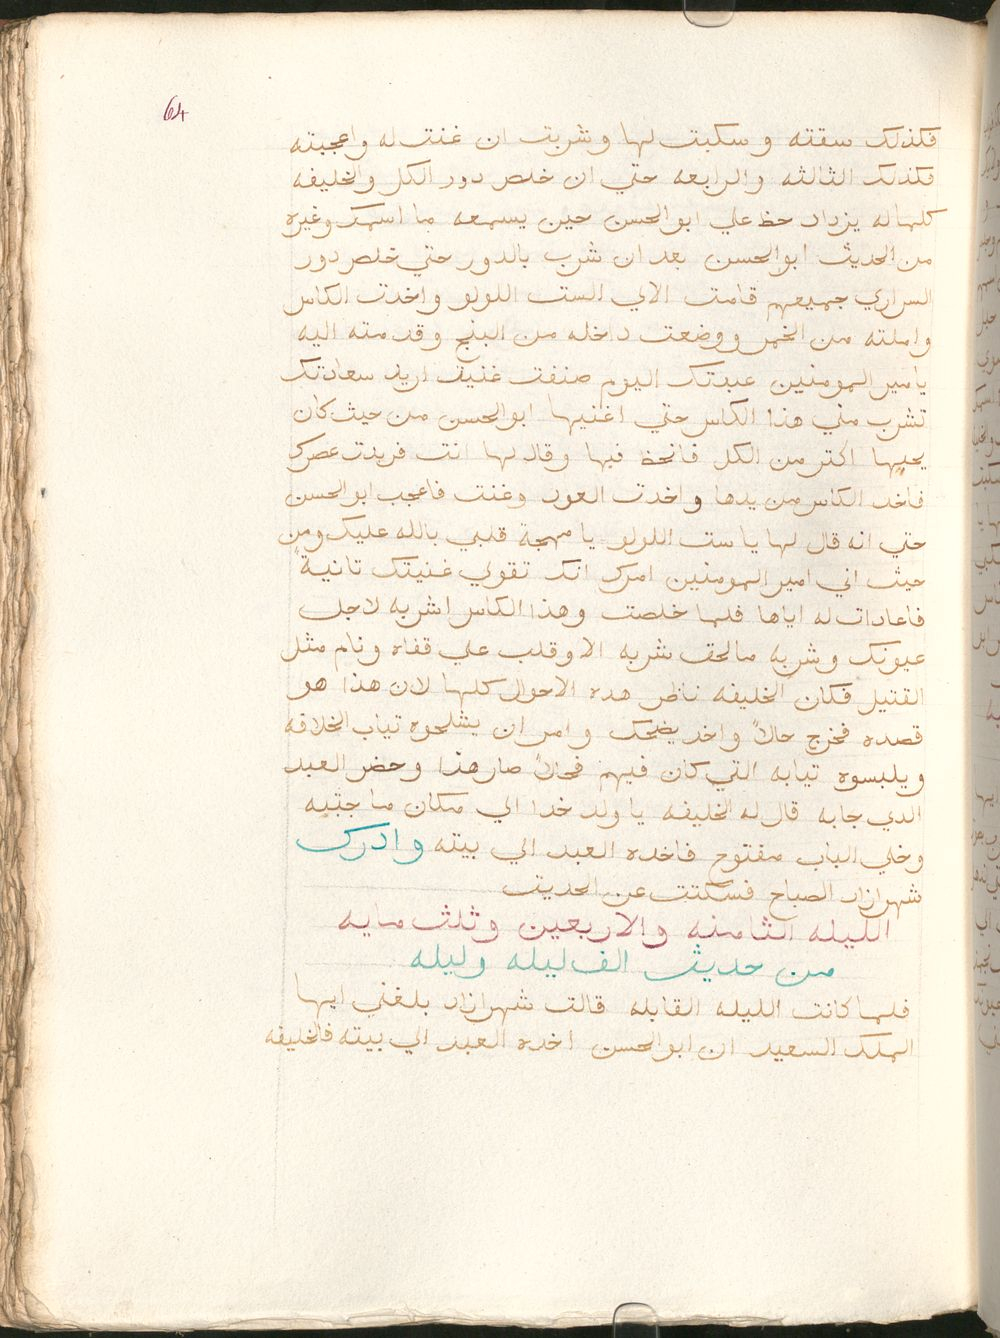 64
فكذلك سقته و سكبت لها و شربت ان غنت له و اعجبته
فكذلك الثالثه والرابعه حتي ان خلص دور الكل والخليفه
كلهاله يزداد حظ علي ابو الحسن حين يسمعه ما اسمك وغيره
من الحديث ابو الحسن بعد ان شرب بالدور حتي خلص دور
السراري جميعهم قامت الالي الست اللولو واخدت الكاس
واملته من الخمر ووضعت داخله من البنج وقدمته اليه
يا مير المومنين عبدتك اليوم صنفت غنية اريد سعادتك
تشرب مني هذا الكاس حتي اغنيها ابو الحسن من حيث كان
يحبها اكتر من الكل فانحظ فيها وقال لها انت فريدت عصرك
فاخد الكاس من يدها واخدت العود وغنت فاعجب ابو الحسن
حتي انه قال لها يا ست اللولو يا مهجة قلبي بالله عليك ومن
حيث اني امير المومنين امرك انك تقولي غنيتك تانيةً
فاعادات له اياها فلها خلصت وهذا الكاس اشربه لاجل
عيونك وشربه مالحق شربه الا وقلب علي قفاه ونام مثل
القتيل فكان الخليفه ناظر هده الاحوال كلها لان هذا هو
قصده فخرج حالاً واخد يضحك وامر ان يشلحوه تياب الخلافه
ويلبسوه تيابه التي كان فيهم فحالاً صار هذا وحضر العبد
الدي جابه قال له الخليفه يا ولد خدا الي مكان ما جتبه
وخلي الباب مفتوح فاخده العبد الي بيته وادرك
شهرازاد الصباح فسكتت عن الحديت
الليله الثامنه والاربعين وثلث مايه
من حديث الف ليله وليله
فلما كانت الليله القابله قالت شهرازاد بلغني ايها
الملك السعيد ان ابو الحسن اخده العبد الي بيته فالخليفه